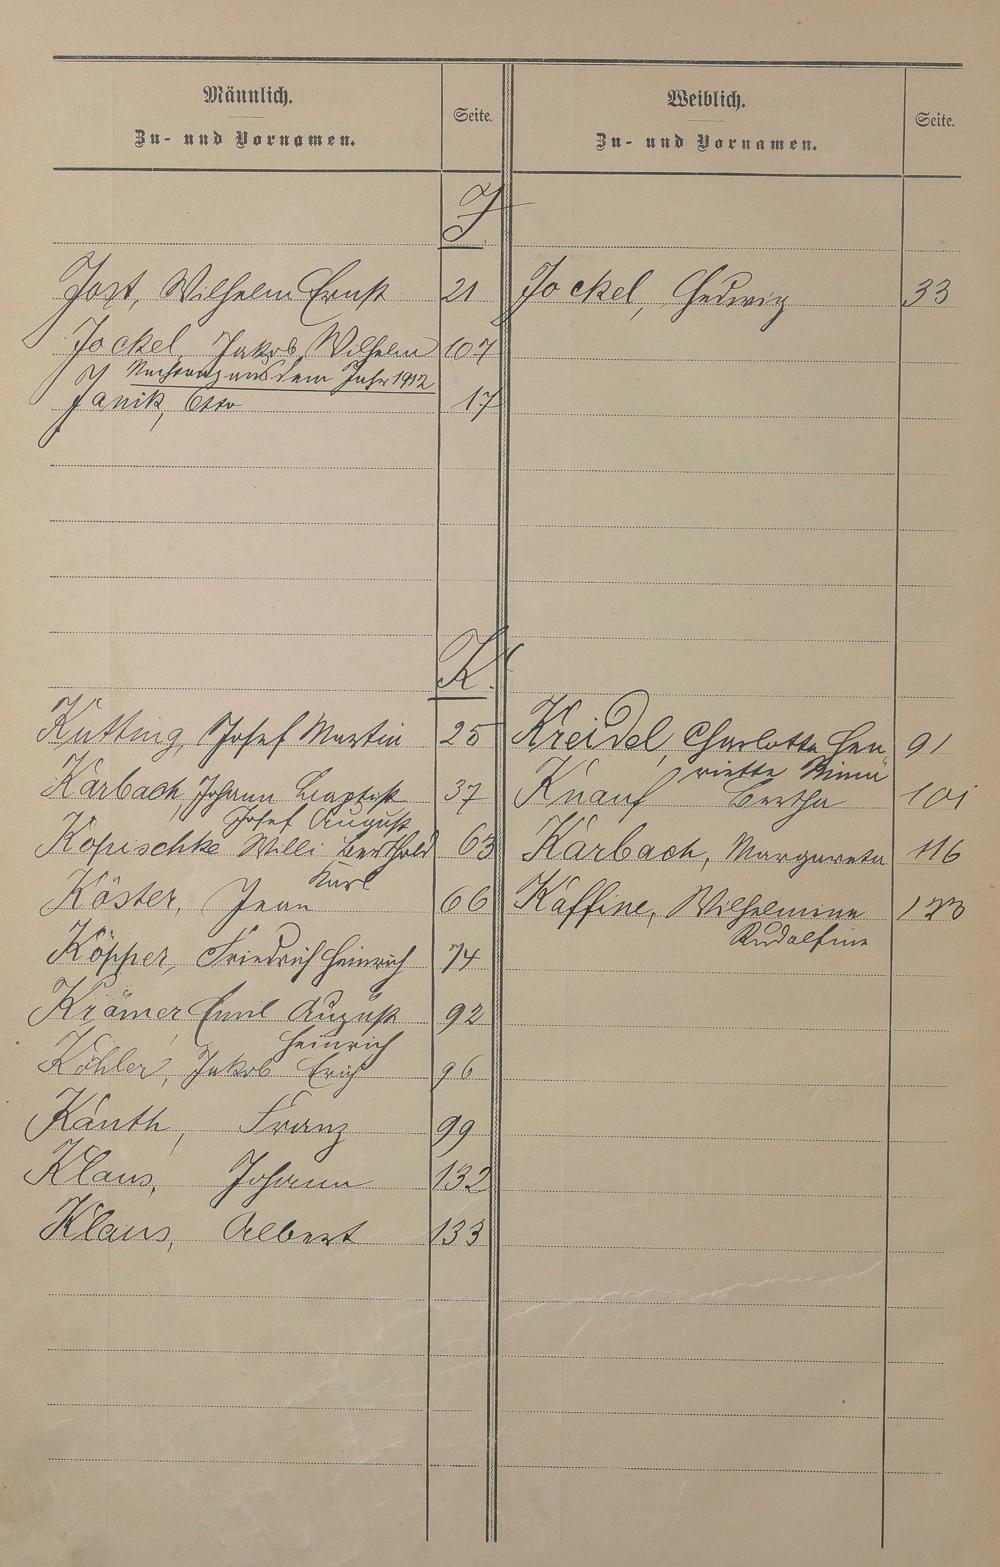 Männlich.
Zu- und Vornamen.
Seite.
Weiblich.
Zu- und Vornamen.
Seite.
J.
Jost, Wilhelm Ernst 21
Jockel, Hedwig 33
Jockel, Jakob Wilhelm 107
Nachtrag aus dem Jahr 1912
Janik, Otto 17
K.
Kutting, Josef Martin 25
Kreidel, Charlotte Hen
riette Minna 91
Karbach, Johann Baptist
Josef August 37
Knauf Bertha 101
Kopischke Willi Berthold
Karl 63
Karbach, Margareta 116
Köster, Jean 66
Kaffine, Wilhelmine
Rudolfine 123
Köpper, Friedrich Heinrich 74
Krämer Emil August
Heinrich 92
Köhler, Jakob Erich 96
Kanth, Franz 99
Klaus, Johann 132
Klaus, Albert 133